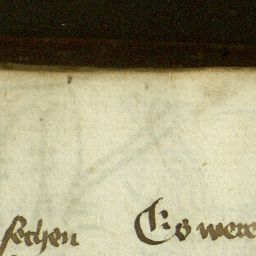 sechen
Es were